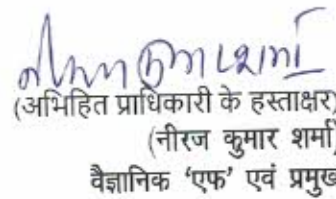 (अभिहित प्राधिकारी के हस्ताक्षर)
(नीरज कुमार शर्मा)
वैज्ञानिक ‘एफ’ एवं प्रमुख